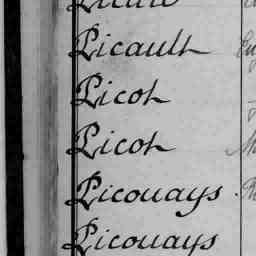 Picault
Picot
Picot
Picouays
Picouays